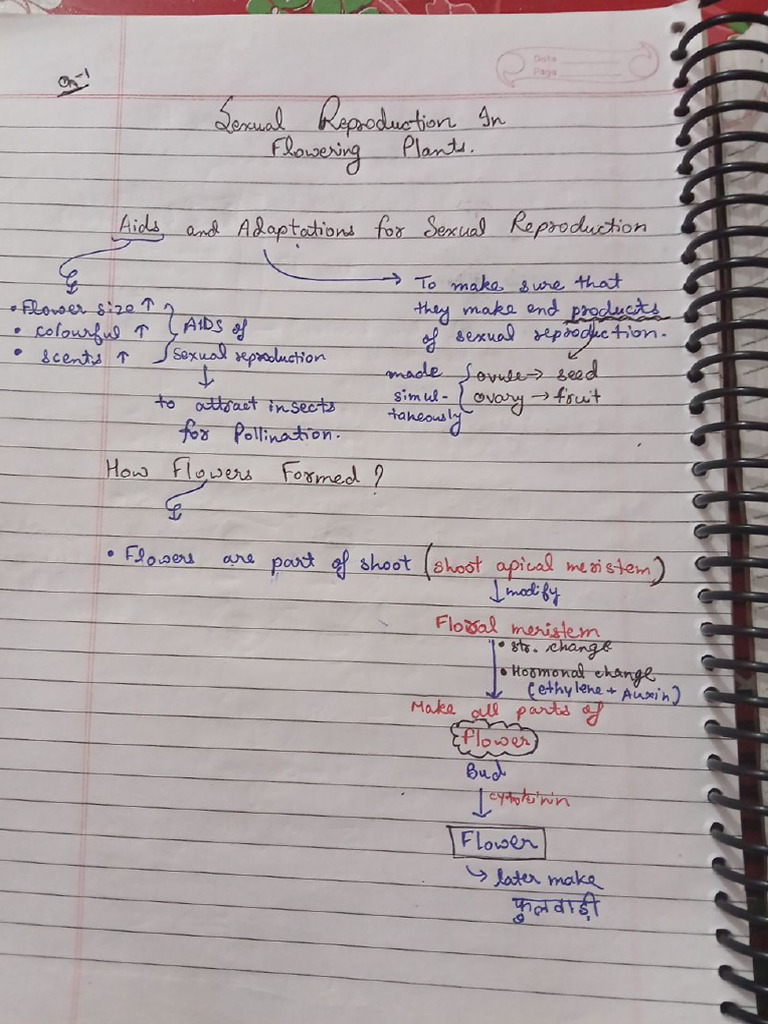 Ch-1
Date
Page
Sexual Reproduction In
Flowering Plants.
Aids and Adaptations for Sexual Reproduction
• Flower size ↑
• colourful ↑
• scents ↑
AIDS of
Sexual reproduction
↓
to attract insects
for Pollination.
→ To make sure that
they make end products
of sexual reproduction.
made simul-taneously
ovule → seed
ovary → fruit
How Flowers Formed ?
• Flowers are part of shoot (shoot apical meristem)
↓ modify
Floral meristem
• str. change
• Hormonal change
(ethylene + Auxin)
Make all parts of
Flower
Bud
↓ cytokinin
Flower
↳ later make
फुलवाड़ी